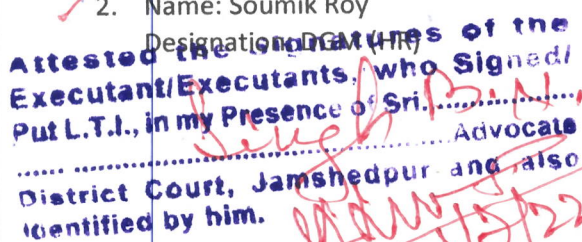 2. Name: Soumik Roy
Designation: DGM (HR)
Attested the signatures of the
Executant/Executants, who Signed/
Put L.T.I., in my Presence of Sri.................
Singh B.N.
.....................................Advocate
District Court, Jamshedpur and also
identified by him.